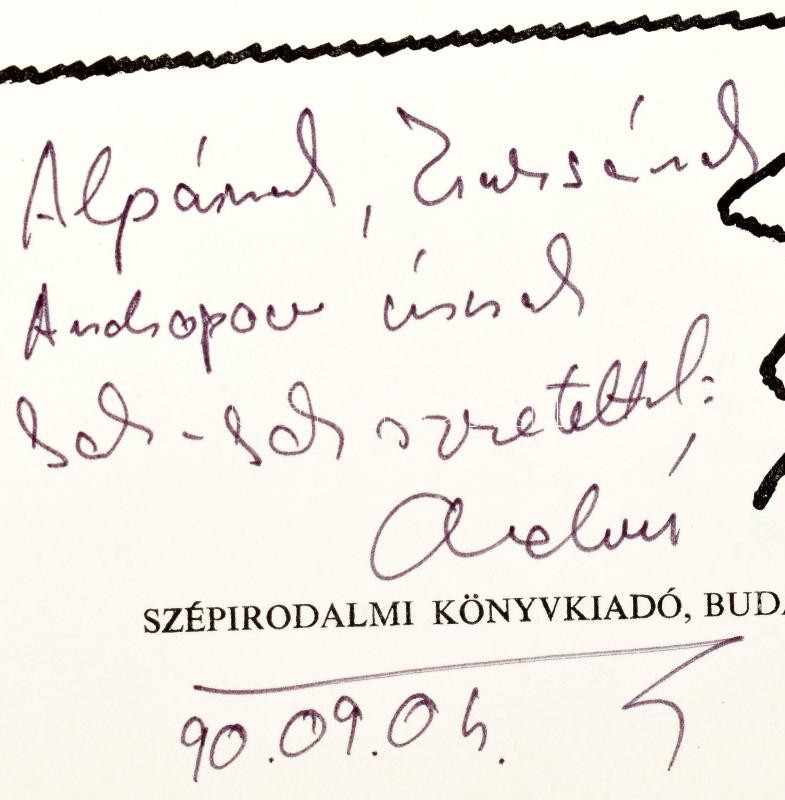 Alpárnak, Zsuzsának
Andropov úrnak
Sok-Sok szeretettel:
András
SZÉPIRODALMI KÖNYVKIADÓ, BUDA
90.09.04.